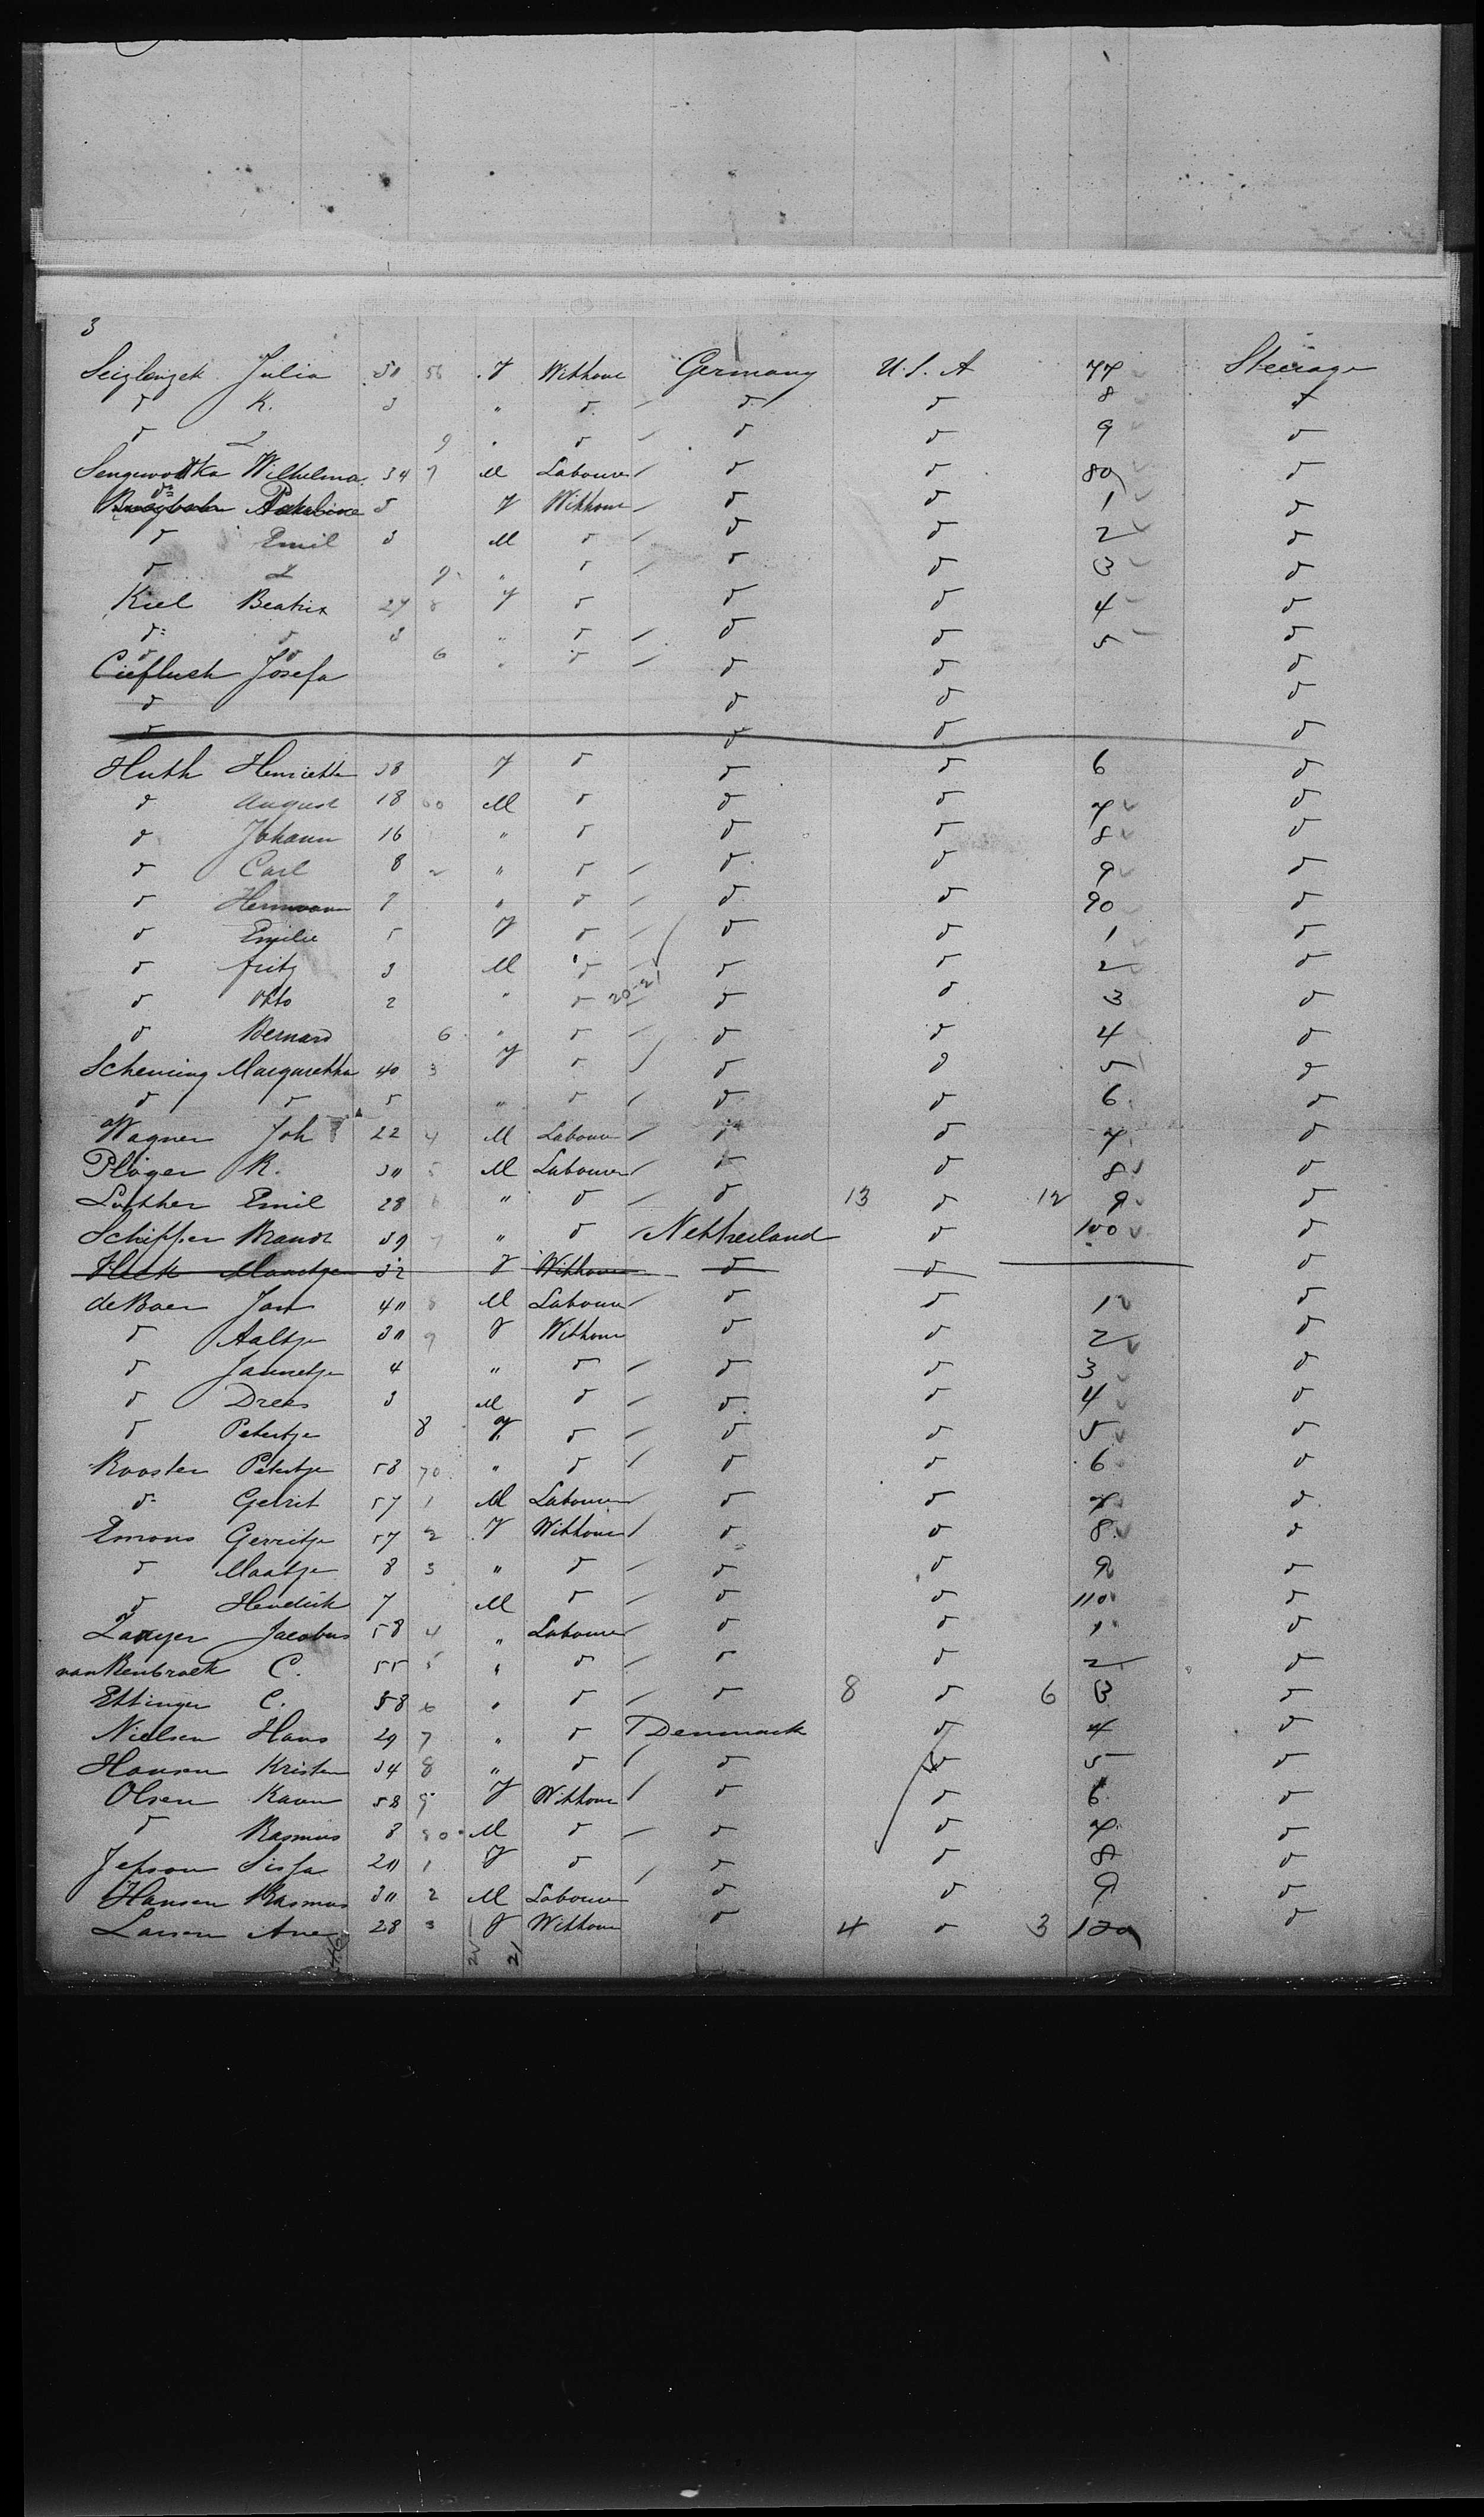 3
Julia 56 F Without Germany U.S.A 77 Steerage
d K. 3 " d d d 8 d
d 9 " d d d 9 d
Wilhelmina 34 7 M Labourer d d 80 d
5 F Without d d 1 d
d Emil 3 M d d d 2 d
d 9 " d d d 3 d
Kiel Beatrix 27 8 F d d d 4 d
d d 3 " d d d 5 d
d d 6 " d
Josefa d d d
d d d d
d d d d
Huth Henriette 38 F d d d 6 d
d August 18 60 M d d d 7 d
d Johann 16 " d d d 8 d
d Carl 8 2 " d d d 9 d
d Hermann 7 " d d d 90 d
d Emilie 5 F d d d 1 d
d fritz 3 M d d d 2 d
d Otto 2 " d 20-21 d d 3 d
d Bernard 6 " d d d 4 d
Margaretha 40 3 F d d d 5 d
d d 5 " d d d 6 d
Wagner Joh 22 4 M Labourer d d 7 d
Plöger R. 30 5 M Labourer d d 8 d
Luther Emil 28 6 " d d 13 d 12 9 d
Schipper 39 7 " d Netherland d 100 d
Maartje 32 F Without d d d
de Boer Jan 40 8 M Labourer d d 1 d
d Aaltje 30 9 F Without d d 2 d
d Jannetje 4 " d d d 3 d
d Drees 3 M d d d 4 d
d Petertje 8 F d d d 5 d
Rooster Petertje 58 70 " d d d 6 d
d Gerrit 57 1 M Labourer d d 7 d
Emons Gerritje 57 2 F Without d d 8 d
d Maatje 8 3 " d d d 9 d
d Hendrik 7 M d d d 110 d
Jacobus 58 4 " Labourer d d 1 d
C. 55 5 " d d d 2 d
Ettinger C. 38 6 " d d 8 d 6 3 d
Nielsen Hans 29 7 " d Denmark d 4 d
Hansen Kristen 34 8 " d d d 5 d
Olsen Karen 58 9 F Without d d 6 d
d Rasmus 8 80 M d d d 7 d
20 1 F d d d 8 d
Hansen Rasmus 30 2 M Labourer d d 9 d
Larsen Ane 28 3 F Without d 4 d 3 120 d
21